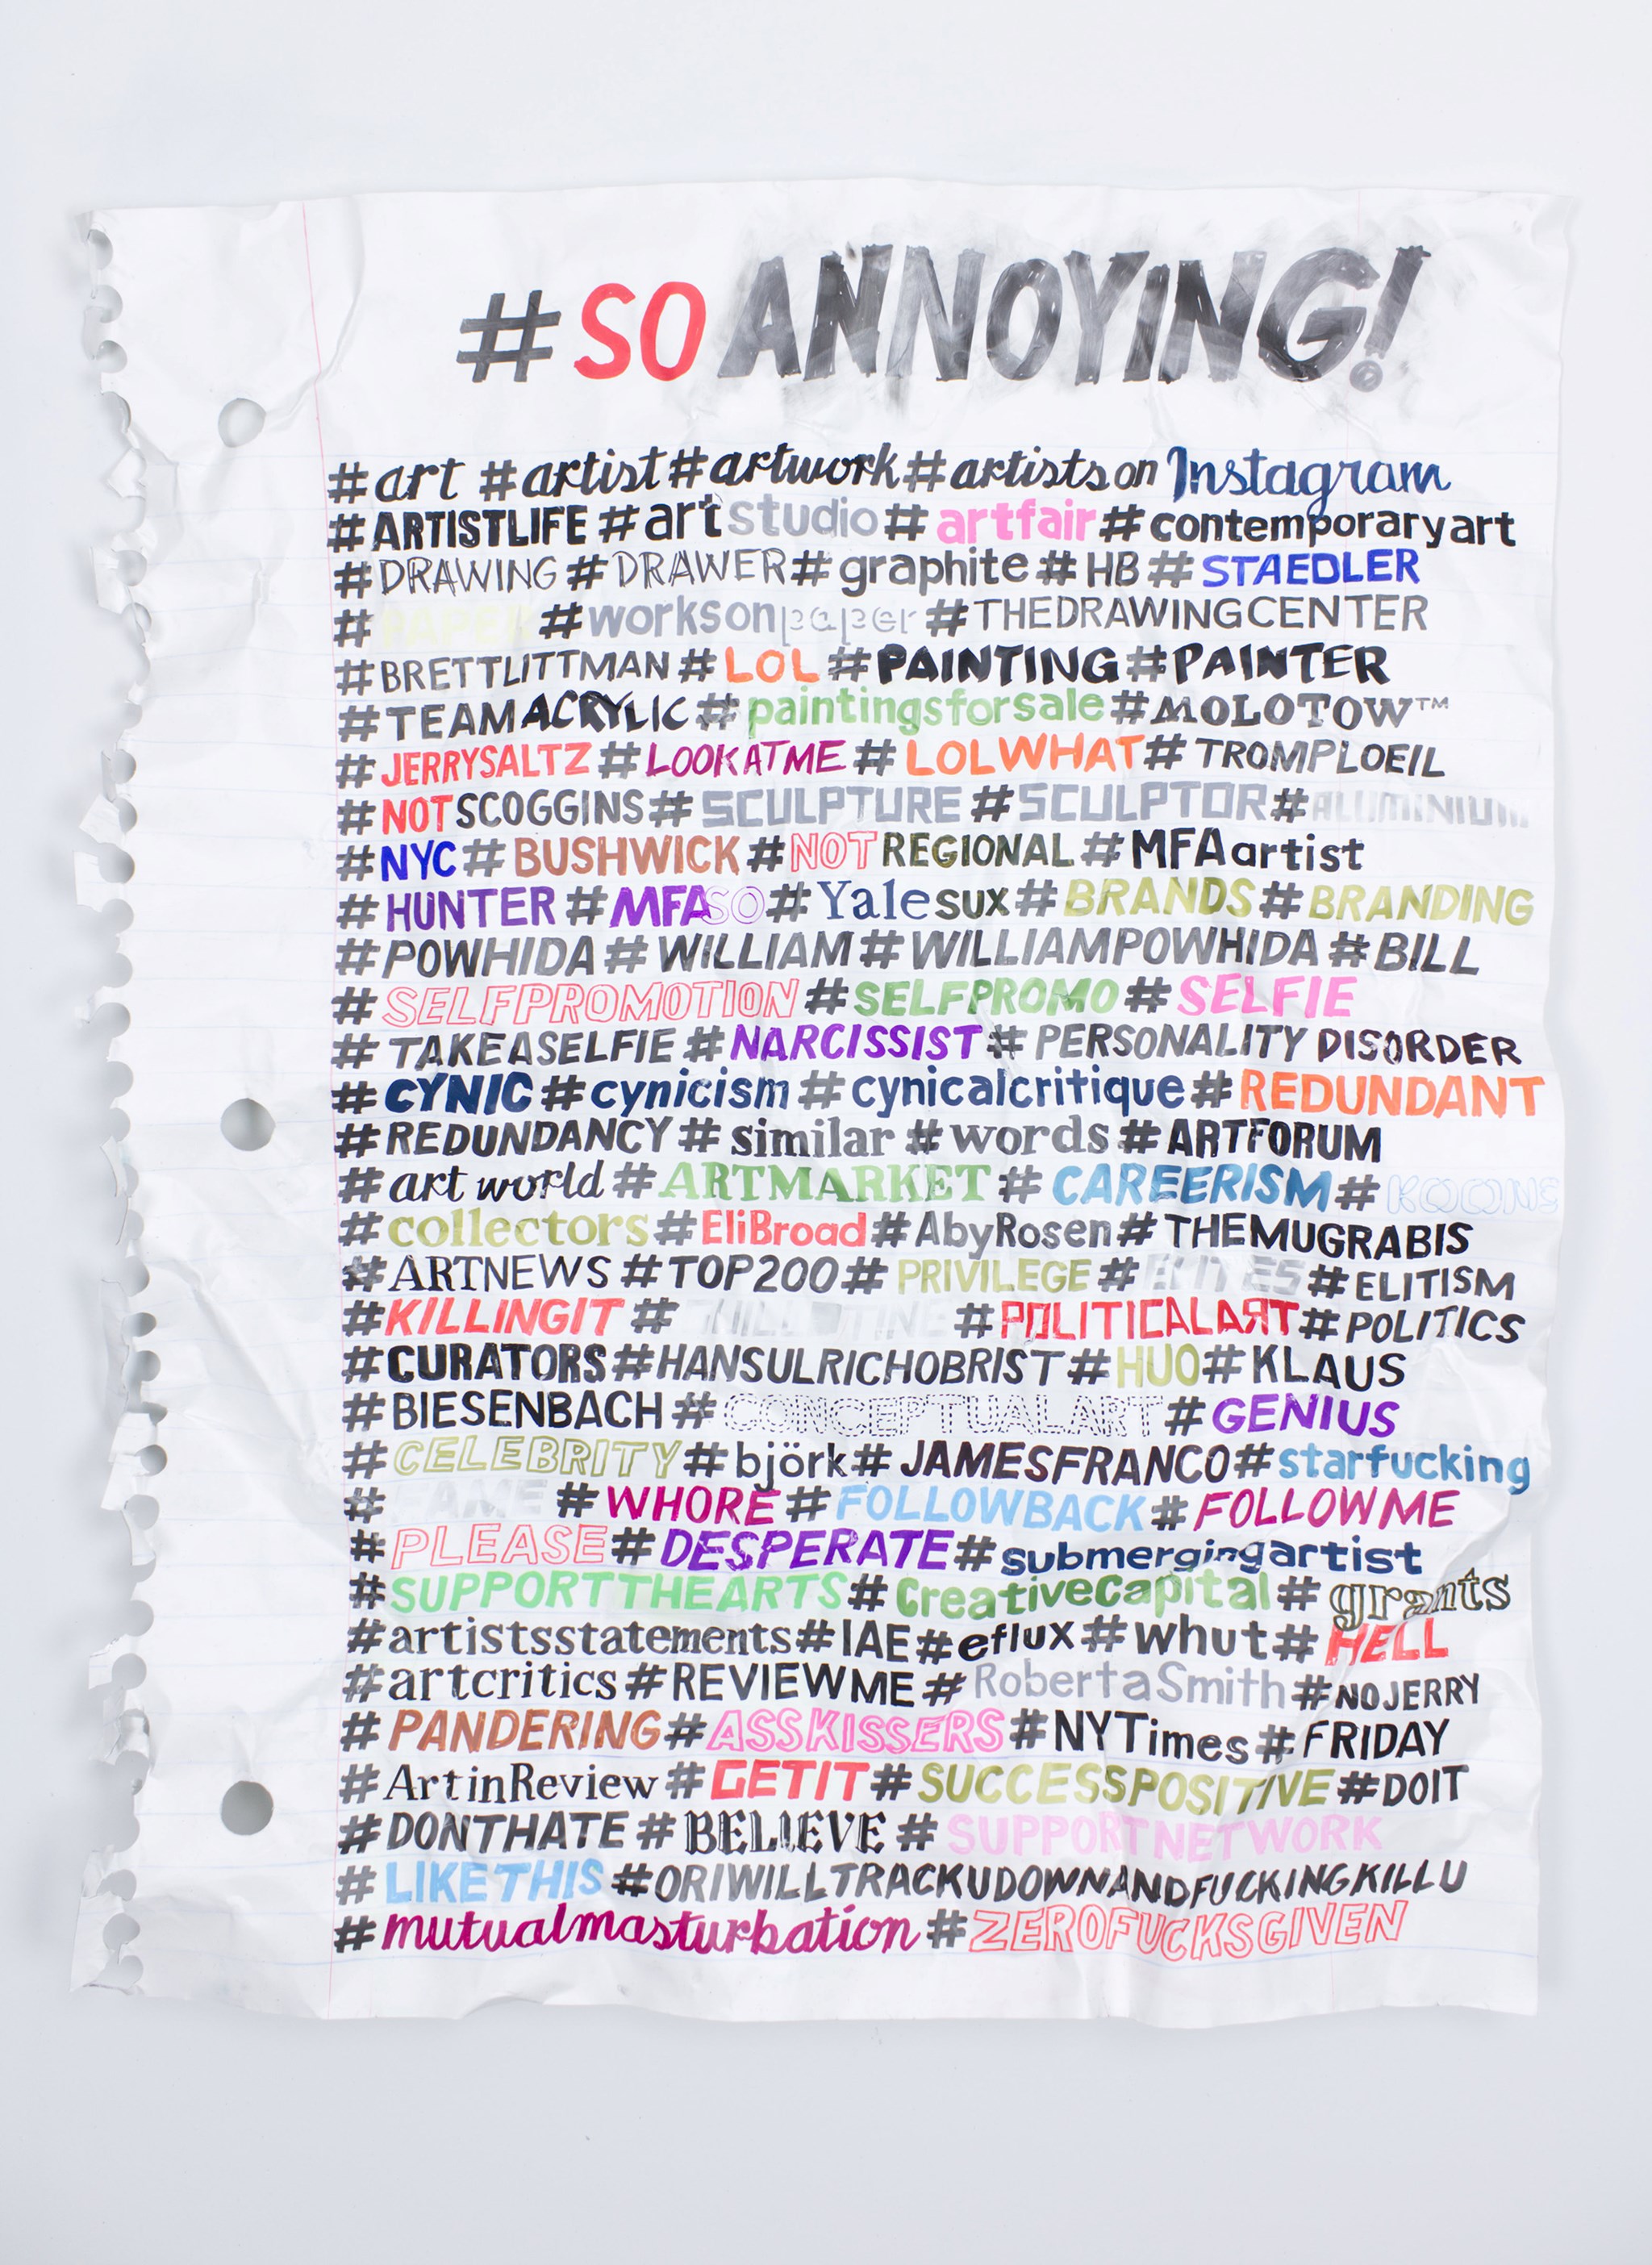 #SO ANNOYING!
#art #artist #artwork #artistson Instagram
#ARTISTLIFE #artstudio #artfair #contemporaryart
#DRAWING #DRAWER #graphite #HB #STAEDLER
#PAPER #worksonpaper #THEDRAWINGCENTER
#BRETTLITTMAN #LOL #PAINTING #PAINTER
#TEAMACRYLIC #paintingsforsale #MOLOTOW™
#JERRYSALTZ #LOOKATME #LOLWHAT #TROMPLOEIL
#NOTSCOGGINS #SCULPTURE #SCULPTOR #ALUMINIUM
#NYC #BUSHWICK #NOTREGIONAL #MFAartist
#HUNTER #MFASO #Yalesux #BRANDS #BRANDING
#POWHIDA #WILLIAM #WILLIAMPOWHIDA #BILL
#SELFPROMOTION #SELFPROMO #SELFIE
#TAKEASELFIE #NARCISSIST #PERSONALITY DISORDER
#CYNIC #cynicism #cynicalcritique #REDUNDANT
#REDUNDANCY #similar #words #ARTFORUM
#art world #ARTMARKET #CAREERISM #KOONS
#collectors #EliBroad #AbyRosen #THEMUGRABIS
#ARTNEWS #TOP200 #PRIVILEGE #ELITES #ELITISM
#KILLINGIT #GUILLOTINE #POLITICALART #POLITICS
#CURATORS #HANSULRICHOBRIST #HUO #KLAUS
#BIESENBACH #CONCEPTUALART #GENIUS
#CELEBRITY #björk #JAMESFRANCO #starfucking
#FAME #WHORE #FOLLOWBACK #FOLLOWME
#PLEASE #DESPERATE #submergingartist
#SUPPORTTHEARTS #Creativecapital #grants
#artistsstatements #IAE #eflux #whut #HELL
#artcritics #REVIEWME #RobertaSmith #NOJERRY
#PANDERING #ASSKISSERS #NYTimes #FRIDAY
#ArtinReview #GETIT #SUCCESSPOSITIVE #DOIT
#DONTHATE #BELIEVE #SUPPORTNETWORK
#LIKETHIS #ORIWILLTRACKUDOWNANDFUCKINGKILLU
#mutualmasturbation #ZEROFUCKSGIVEN